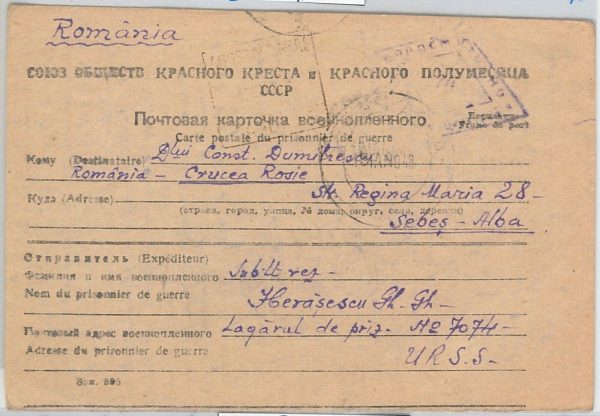 România
СОЮЗ ОБЩЕСТВ КРАСНОГО КРЕСТА и КРАСНОГО ПОЛУМЕСЯЦА
СССР
Почтовая карточка военнопленного
Carte postale du prisonnier de guerre
Кому (Destinataire) Dlui Const. Dumitrescu
România - Crucea Rosie
Куда (Adresse) Str. Regina Maria 28 -
(страна, город, улица, № дома, округ, село, деревня)
Sebeș - Alba
Отправитель (Expéditeur)
Фамилия и имя военнопленного Sublt rez -
Nom du prisonnier de guerre Herășescu Gh. Gh -
Почтовый адрес военнопленного Lagărul de priz. No 7074 -
Adresse du prisonnier de guerre U R S S -
Зак. 895